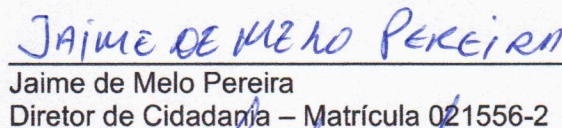 JAIME DE MELO PEREIRA
Jaime de Melo Pereira
Diretor de Cidadania – Matrícula 021556-2